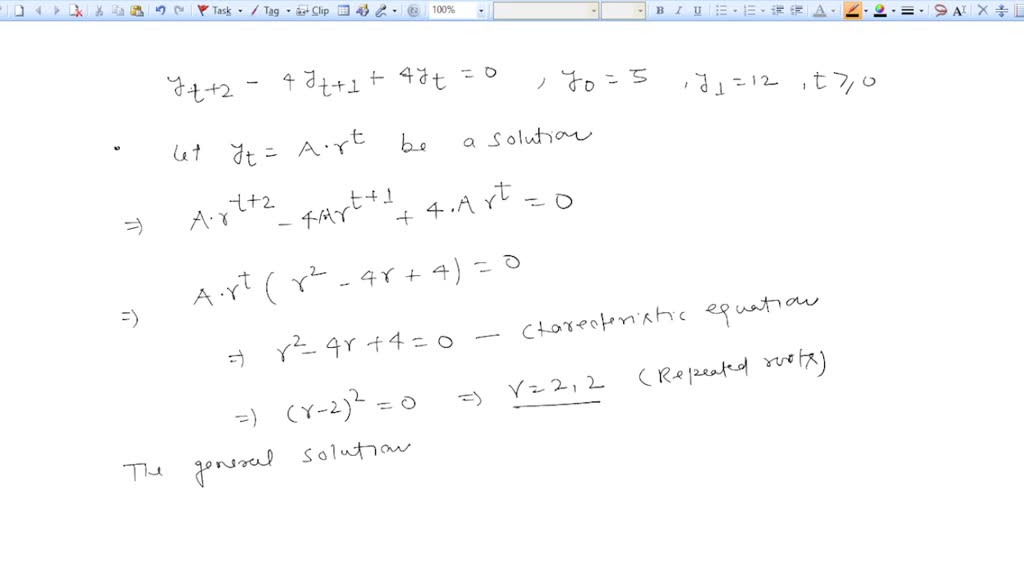 Task Tag Clip 100% B I U A
y_{t+2} - 4y_{t+1} + 4y_t = 0 , y_0 = 5 , y_1 = 12 , t ≥ 0
• Let y_t = A·r^t be a solution
⇒ A·r^{t+2} - 4Ar^{t+1} + 4·Ar^t = 0
⇒ A·r^t ( r^2 - 4r + 4) = 0
⇒ r^2 - 4r + 4 = 0 — Charecteristic equation
⇒ (r-2)^2 = 0 ⇒ r = 2, 2 (Repeated roots)
The general solution